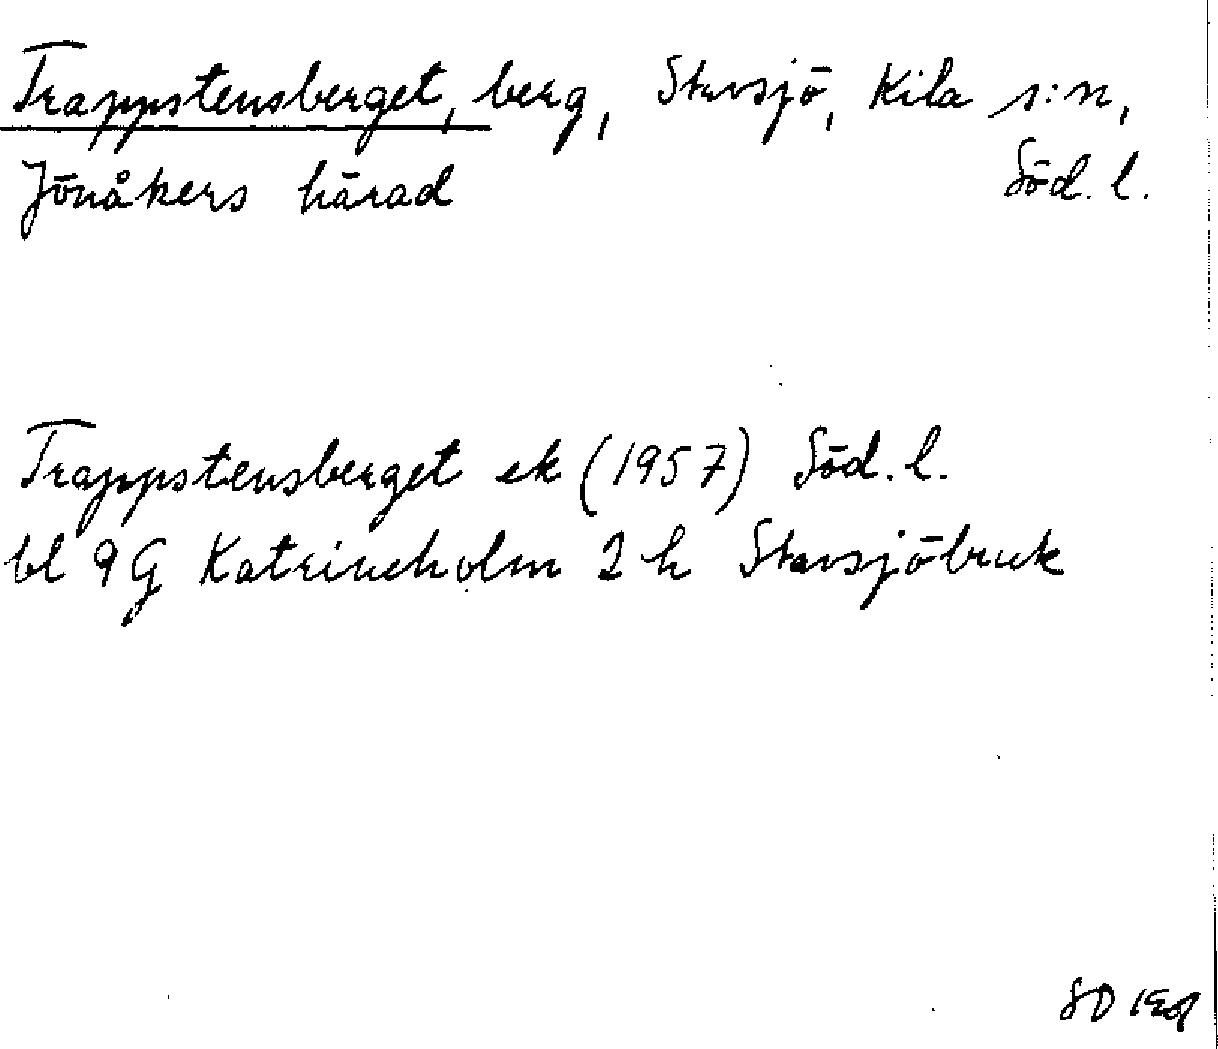 Trappstensberget, berg, Stavsjö, Kila s:n,
Jönåkers härad Söd. l.
Trappstensberget ek (1957) Söd. l.
bl 9G Katrineholm 2 h Stavsjöbruk
SD